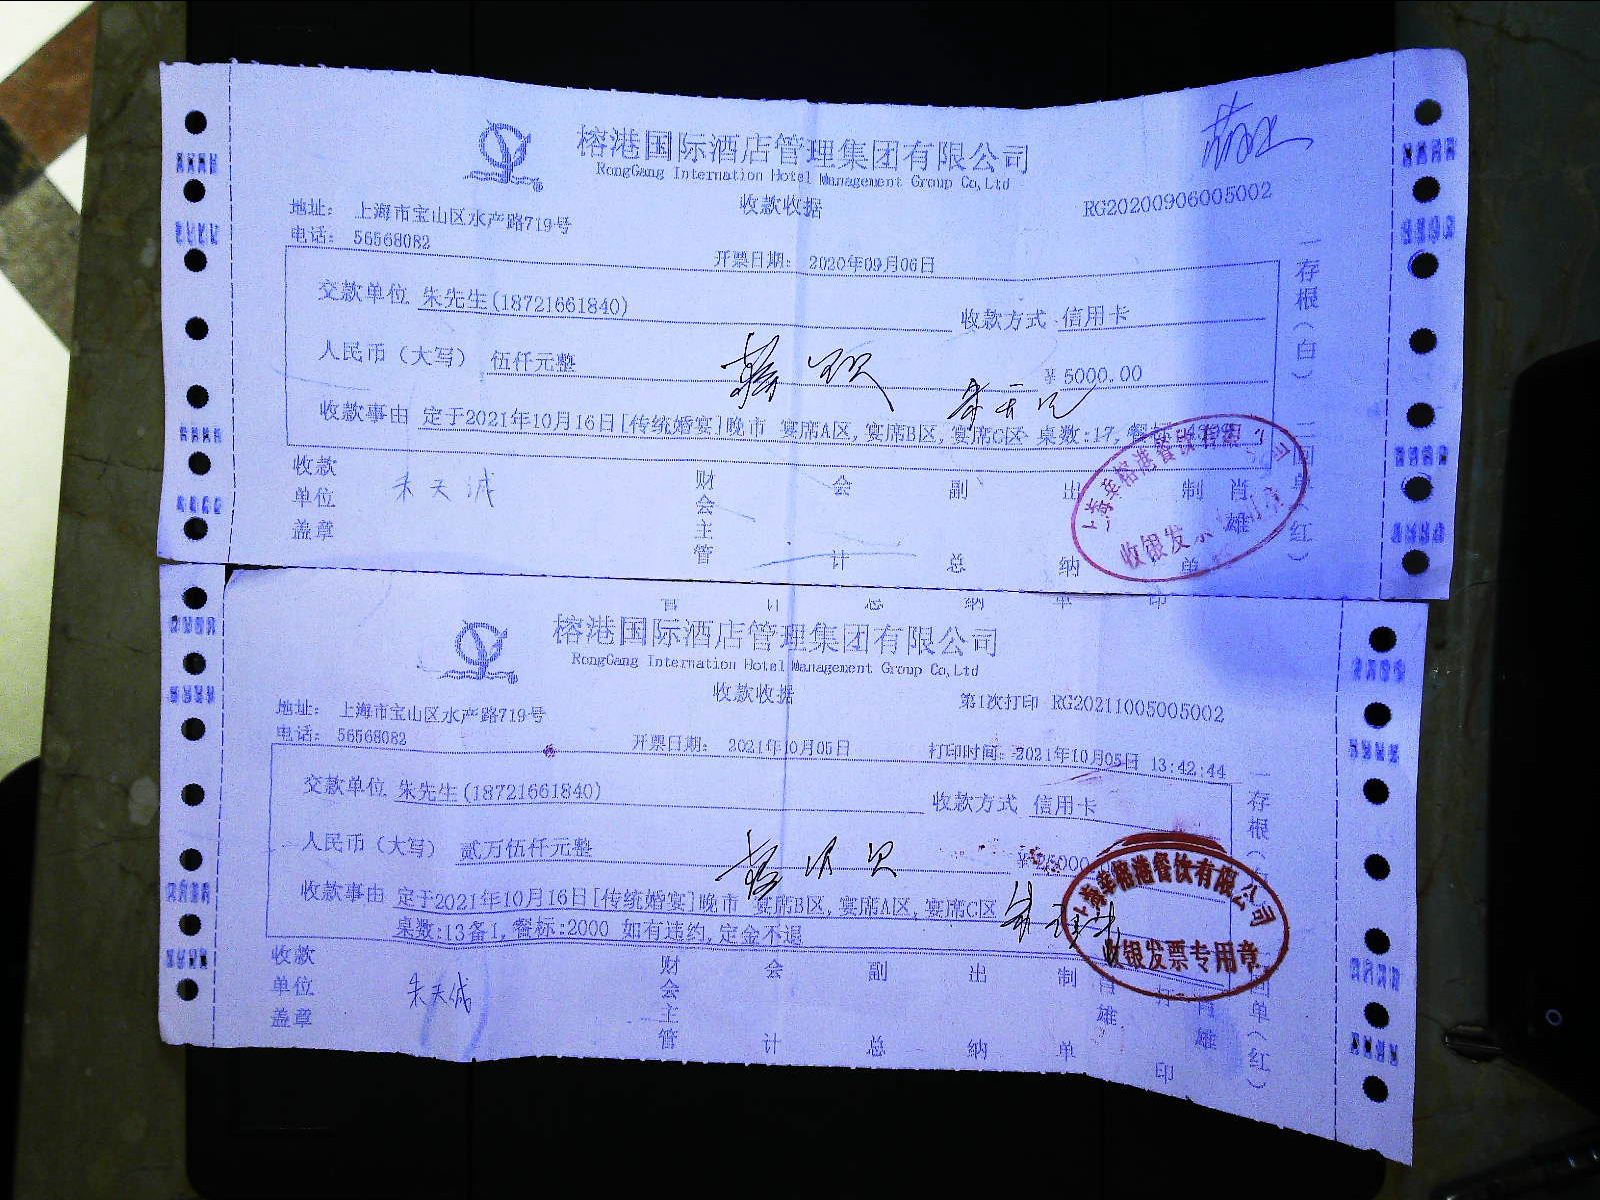 榕港国际酒店管理集团有限公司
RongGang Internation Hotel Management Group Co,Ltd
收款收据
RG20200906005002
地址： 上海市宝山区水产路719号
电话： 56568082
开票日期： 2020年09月06日
交款单位 朱先生(18721661840) 收款方式 信用卡
人民币（大写） 伍仟元整 ¥ 5000.00
收款事由 定于2021年10月16日[传统婚宴]晚市 宴席A区,宴席B区,宴席C区 桌数:17,
收款单位盖章 朱天诚 财会主管 会计 副总 出纳 制单 肖雄
一存根（白） 二回单（红）
榕港餐饮有限公司
收银发票
榕港国际酒店管理集团有限公司
RongGang Internation Hotel Management Group Co,Ltd
收款收据
第1次打印 RG20211005005002
地址： 上海市宝山区水产路719号
电话： 56568082
开票日期： 2021年10月05日 打印时间： 2021年10月05日 13:42:44
交款单位 朱先生(18721661840) 收款方式 信用卡
人民币（大写） 贰万伍仟元整
收款事由 定于2021年10月16日[传统婚宴]晚市 宴席B区,宴席A区,宴席C区
桌数:13备1,餐标:2000 如有违约,定金不退
收款单位盖章 朱天诚 财会主管 会计 副总 出纳 制单 肖雄 打印 肖雄
一存根 回单（红）
上海华榕港餐饮有限公司
收银发票专用章